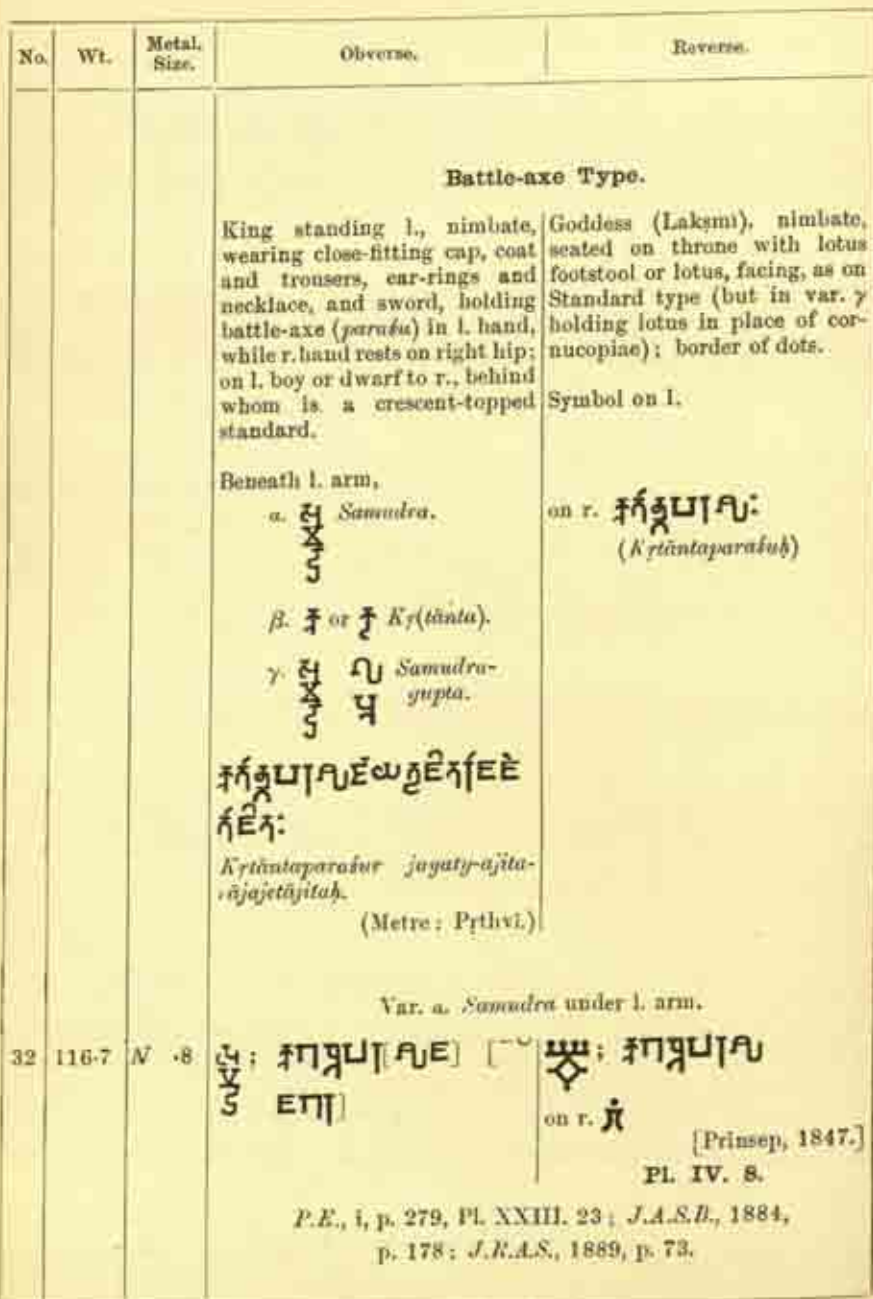 No.
Wt.
Metal.
Size.
Obverse.
Reverse.
Battle-axe Type.
King standing l., nimbate,
wearing close-fitting cap, coat
and trousers, ear-rings and
necklace, and sword, holding
battle-axe (paraśu) in l. hand,
while r. hand rests on right hip;
on l. boy or dwarf to r., behind
whom is a crescent-topped
standard.
Beneath l. arm,
α. Samudra.
β. or Kṛ(tānta).
γ. Samudra-
gupta.
Kṛtāntaparaśur jagaty-ajita-
rājajetājitaḥ.
(Metre: Pṛthvī.)
Goddess (Lakṣmī), nimbate,
seated on throne with lotus
footstool or lotus, facing, as on
Standard type (but in var. γ
holding lotus in place of cor-
nucopiae); border of dots.
Symbol on l.
on r.
(Kṛtāntaparaśuḥ)
Var. α. Samudra under l. arm.
32 116·7 N ·8
on r.
[Prinsep, 1847.]
Pl. IV. 8.
P.E., i, p. 279, Pl. XXIII. 23; J.A.S.B., 1884,
p. 178; J.R.A.S., 1889, p. 73.